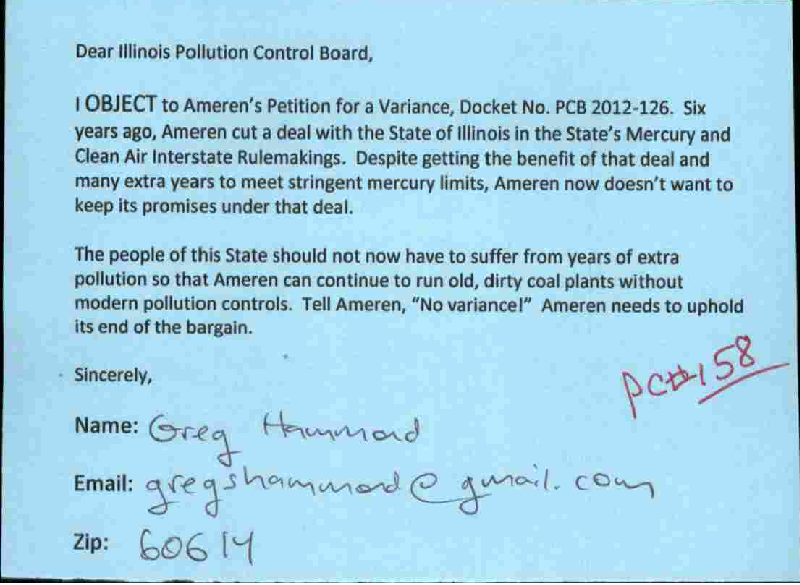 Dear Illinois Pollution Control Board,
I OBJECT to Ameren's Petition for a Variance, Docket No. PCB 2012-126. Six
years ago, Ameren cut a deal with the State of Illinois in the State's Mercury and
Clean Air Interstate Rulemakings. Despite getting the benefit of that deal and
many extra years to meet stringent mercury limits, Ameren now doesn't want to
keep its promises under that deal.
The people of this State should not now have to suffer from years of extra
pollution so that Ameren can continue to run old, dirty coal plants without
modern pollution controls. Tell Ameren, "No variance!" Ameren needs to uphold
its end of the bargain.
Sincerely,
PC#158
Name: Greg Hammond
Email: gregshammond@gmail.com
Zip: 60614